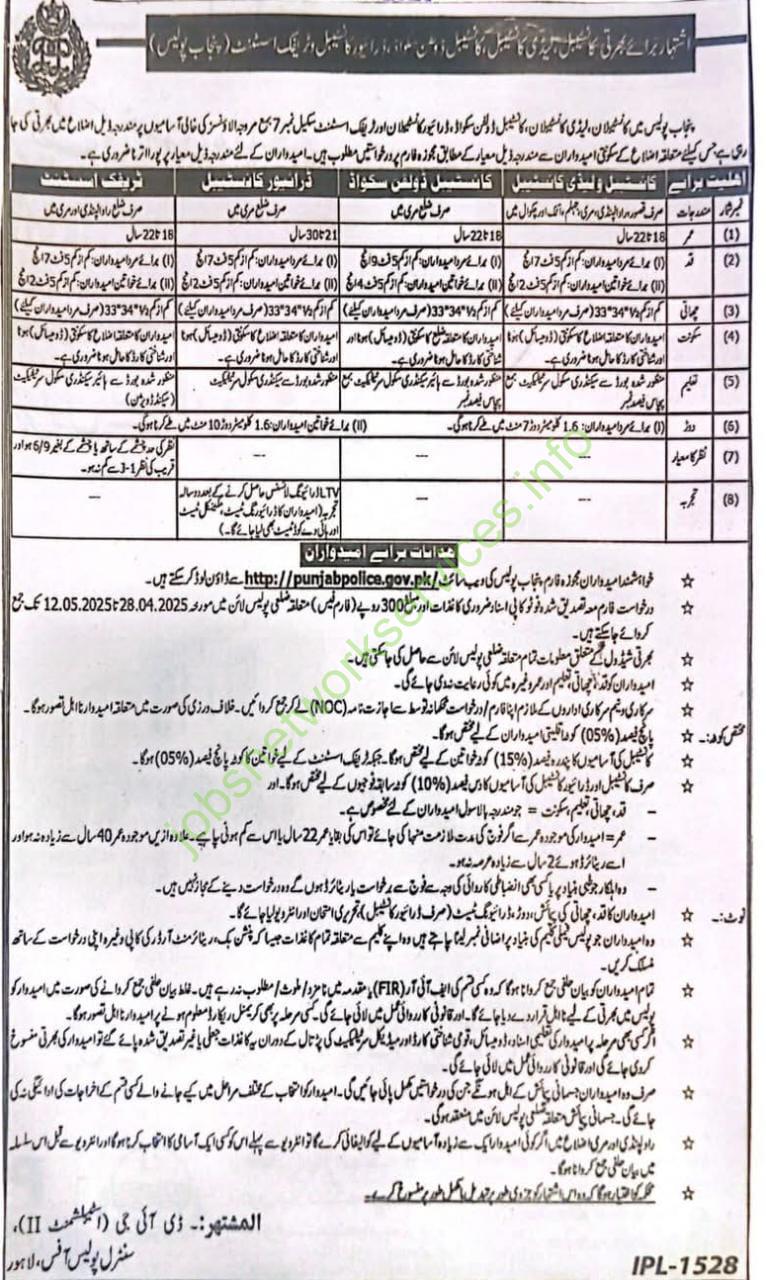 اشتہار برائے بھرتی کانسٹیبل، لیڈی کانسٹیبل، کانسٹیبل ڈولفن سکواڈ، ڈرائیور کانسٹیبل و ٹریفک اسسٹنٹ (پنجاب پولیس)
پنجاب پولیس میں کانسٹیبلان، لیڈی کانسٹیبلان، کانسٹیبل ڈولفن سکواڈ، ڈرائیور کانسٹیبلان اور ٹریفک اسسٹنٹ سکیل نمبر 7 بمع مروجہ الاؤنسز کی خالی آسامیوں پر مندرجہ ذیل اضلاع میں بھرتی کی جا
رہی ہے جس کیلئے متعلقہ اضلاع کے سکونتی امیدواران سے مندرجہ ذیل معیار کے مطابق مجوزہ فارم پر درخواستیں مطلوب ہیں۔ امیدواران کے لئے مندرجہ ذیل معیار پر پورا اترنا ضروری ہے۔
اہلیت برائے کانسٹیبل و لیڈی کانسٹیبل کانسٹیبل ڈولفن سکواڈ ڈرائیور کانسٹیبل ٹریفک اسسٹنٹ
نمبر شمار مندرجات صرف قصور، راولپنڈی، مری، جہلم، اٹک اور چکوال میں صرف ضلع مری میں صرف ضلع مری میں صرف ضلع راولپنڈی اور مری میں
(1) عمر 18 تا 22 سال 18 تا 22 سال 21 تا 30 سال 18 تا 22 سال
(2) قد (I) برائے مرد امیدواران: کم از کم 5 فٹ 7 انچ (I) برائے مرد امیدواران: کم از کم 5 فٹ 9 انچ (I) برائے مرد امیدواران: کم از کم 5 فٹ 7 انچ (I) برائے مرد امیدواران: کم از کم 5 فٹ 7 انچ
(II) برائے خواتین امیدواران: کم از کم 5 فٹ 2 انچ (II) برائے خواتین امیدواران: کم از کم 5 فٹ 4 انچ (II) برائے خواتین امیدواران: کم از کم 5 فٹ 2 انچ (II) برائے خواتین امیدواران: کم از کم 5 فٹ 2 انچ
(3) چھاتی کم از کم 33*34½ (صرف مرد امیدواران کیلئے) کم از کم 33*34½ (صرف مرد امیدواران کیلئے) کم از کم 33*34½ (صرف مرد امیدواران کیلئے) کم از کم 33*34½ (صرف مرد امیدواران کیلئے)
(4) سکونت امیدواران کا متعلقہ اضلاع کا سکونتی (ڈومیسائل) ہونا امیدواران کا متعلقہ ضلع کا سکونتی (ڈومیسائل) ہونا اور امیدواران کا متعلقہ اضلاع کا سکونتی (ڈومیسائل) ہونا امیدواران کا متعلقہ اضلاع کا سکونتی (ڈومیسائل) ہونا
اور شناختی کارڈ کا حامل ہونا ضروری ہے۔ شناختی کارڈ کا حامل ہونا ضروری ہے۔ اور شناختی کارڈ کا حامل ہونا ضروری ہے۔ اور شناختی کارڈ کا حامل ہونا ضروری ہے۔
(5) تعلیم منظور شدہ بورڈ سے سیکنڈری سکول سرٹیفکیٹ بمع منظور شدہ بورڈ سے ہائیر سیکنڈری سکول سرٹیفکیٹ بمع منظور شدہ بورڈ سے سیکنڈری سکول سرٹیفکیٹ منظور شدہ بورڈ سے ہائیر سیکنڈری سکول سرٹیفکیٹ
پچاس فیصد نمبر پچاس فیصد نمبر (سیکنڈ ڈویژن)
(6) دوڑ (I) برائے مرد امیدواران: 1.6 کلومیٹر دوڑ 7 منٹ میں طے کرنا ہوگی۔ (II) برائے خواتین امیدواران: 1.6 کلومیٹر دوڑ 10 منٹ میں طے کرنا ہوگی۔
(7) نظر کا معیار --- --- --- نظر کی حد چشمے کے ساتھ یا چشمے کے بغیر 6/9 ہو اور
قریب کی نظر J-1 سے کم نہ ہو۔
(8) تجربہ --- --- LTV ڈرائیونگ لائسنس حاصل کرنے کے بعد دو سالہ ---
تجربہ (امیدواران کا ڈرائیونگ ٹیسٹ، مکینیکل ٹیسٹ
اور ہائی وے کوڈ ٹیسٹ بھی لیا جائے گا۔)
ھدایات برائے امیدواران
☆ خواہشمند امیدواران مجوزہ فارم پنجاب پولیس کی ویب سائٹ http://punjabpolice.gov.pk/ سے ڈاؤن لوڈ کر سکتے ہیں۔
☆ درخواست فارم معہ تصدیق شدہ فوٹو کاپی اسناد ضروری کاغذات اور مبلغ 300 روپے (فارم فیس) متعلقہ ضلعی پولیس لائن میں مورخہ 28.04.2025 تا 12.05.2025 تک جمع
کروائے جا سکتے ہیں۔
☆ بھرتی شیڈول کے متعلق معلومات تمام متعلقہ ضلعی پولیس لائن سے حاصل کی جا سکتی ہیں۔
☆ امیدواران کو قد، چھاتی، تعلیم اور عمر وغیرہ میں کوئی رعایت نہ دی جائے گی۔
☆ سرکاری و نیم سرکاری اداروں کے ملازم اپنا فارم / درخواست محکمانہ توسط سے اجازت نامہ (NOC) لے کر جمع کروائیں۔ خلاف ورزی کی صورت میں متعلقہ امیدوار نا اہل تصور ہوگا۔
مختص کوٹہ:۔ ☆ پانچ فیصد (05%) کوٹہ اقلیتی امیدواران کے لئے مختص ہوگا۔
☆ کانسٹیبل کی آسامیوں کا پندرہ فیصد (15%) کوٹہ خواتین کے لئے مختص ہوگا۔ جبکہ ٹریفک اسسٹنٹ کے لیے خواتین کا کوٹہ پانچ فیصد (05%) ہوگا۔
☆ صرف کانسٹیبل اور ڈرائیور کانسٹیبل کی آسامیوں کا دس فیصد (10%) کوٹہ سابقہ فوجیوں کے لئے مختص ہوگا۔ اور
– قد، چھاتی، تعلیم، سکونت = جو مندرجہ بالا سول امیدواران کے لئے مخصوص ہے۔
– عمر = امیدوار کی موجودہ عمر سے اگر فوج کی مدت ملازمت منہا کی جائے تو اس کی بقایا عمر 22 سال یا اس سے کم ہونی چاہیے۔ علاوہ ازیں موجودہ عمر 40 سال سے زیادہ نہ ہو اور
اسے ریٹائرڈ ہوئے 2 سال سے زیادہ عرصہ نہ ہو۔
– وہ اہلکار جو طبی بنیاد پر یا کسی بھی انضباطی کاروائی کی وجہ سے فوج سے برخواست یا ریٹائرڈ ہوں گے وہ درخواست دینے کے مجاز نہیں ہیں۔
نوٹ:۔ ☆ امیدواران کا قد، چھاتی کی پیمائش، دوڑ، ڈرائیونگ ٹیسٹ (صرف ڈرائیور کانسٹیبل)، تحریری امتحان اور انٹرویو لیا جائے گا۔
☆ وہ امیدواران جو پولیس فیملی کلیم کی بنیاد پر اضافی نمبر لینا چاہتے ہیں وہ اپنے کلیم سے متعلقہ تمام کاغذات جیسا کہ پنشن بک، ریٹائرمنٹ آرڈر کی کاپی وغیرہ اپنی درخواست کے ساتھ
منسلک کریں۔
☆ تمام امیدواران کو بیان حلفی جمع کروانا ہوگا کہ وہ کسی قسم کی ایف آئی آر (FIR) یا مقدمہ میں نامزد / ملوث / مطلوب نہ رہے ہیں۔ غلط بیان حلفی جمع کروانے کی صورت میں امیدوار کو
پولیس میں بھرتی کے لیے نا اہل قرار دے دیا جائے گا۔ اور قانونی کاروائی عمل میں لائی جائے گی۔ کسی مرحلہ پر بھی کریمنل ریکارڈ معلوم ہونے پر امیدوار نا اہل تصور ہوگا۔
☆ اگر کسی بھی مرحلہ پر امیدوار کی تعلیمی اسناد، ڈومیسائل، قومی شناختی کارڈ اور میڈیکل سرٹیفکیٹ کی پڑتال کے دوران یہ کاغذات جعلی یا غیر تصدیق شدہ پائے گئے تو امیدوار کی بھرتی منسوخ
کر دی جائے گی اور قانونی کاروائی عمل میں لائی جائے گی۔
☆ صرف وہ امیدواران جسمانی پیمائش کے اہل ہونگے جن کی درخواستیں مکمل پائی جائیں گی۔ امیدوار کو انتخاب کے مختلف مراحل میں کیے جانے والے کسی قسم کے اخراجات کی ادائیگی نہ کی
جائے گی۔ جسمانی پیمائش متعلقہ ضلعی پولیس لائن میں منعقد ہوگی۔
☆ راولپنڈی اور مری اضلاع میں اگر کوئی امیدوار ایک سے زیادہ آسامیوں کے لیے کوالیفائی کرے گا تو انٹرویو سے پہلے اس کو کسی ایک آسامی کا انتخاب کرنا ہوگا اور انٹرویو سے قبل اس سلسلہ
میں بیان حلفی جمع کروانا ہوگا۔
☆ محکمہ کو اختیار ہوگا کہ وہ اس اشتہار کو جزوی طور پر تبدیل یا مکمل طور پر منسوخ کر دے۔
المشتہر:۔ ڈی آئی جی (اسٹیبلشمنٹ II)،
سنٹرل پولیس آفس، لاہور
IPL-1528
jobsnetworkservices.info